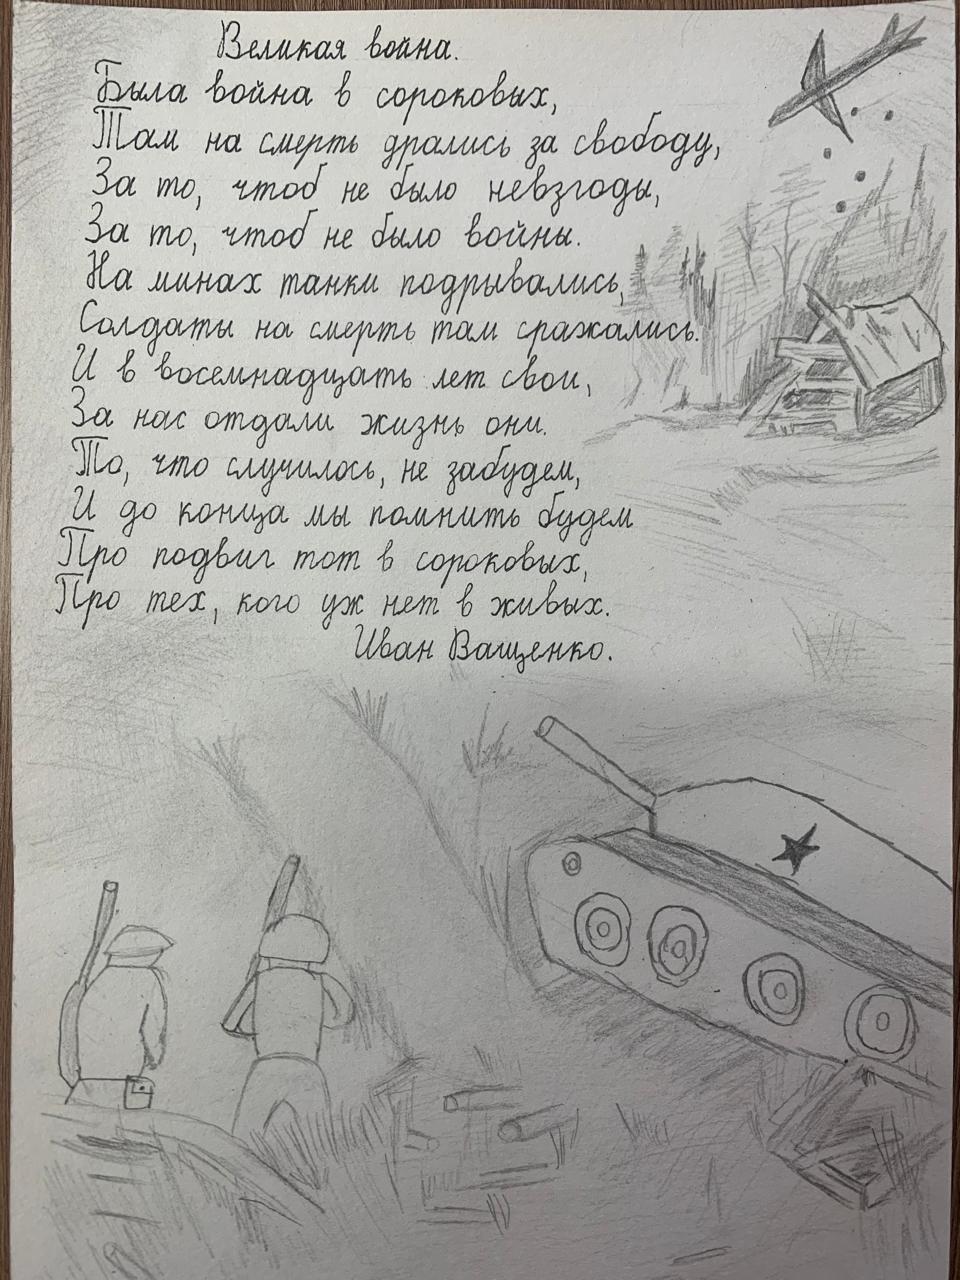 Великая война.
Была война в сороковых,
Там на смерть дрались за свободу,
За то, чтоб не было невзгоды,
За то, чтоб не было войны.
На минах танки подрывались,
Солдаты на смерть там сражались.
И в восемнадцать лет свои,
За нас отдали жизнь они.
То, что случилось, не забудем,
И до конца мы помнить будем
Про подвиг тот в сороковых,
Про тех, кого уж нет в живых.
Иван Ващенко.